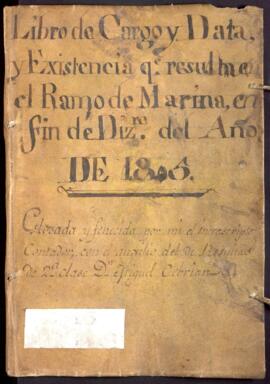 Libro de Cargo y Data,
y Existencia q.e resulta en
el Ramo de Marina, en
fin de Diz.re del Año
DE 1806.
y fenecida por mi el infrascripto
Contador, con el auxilio del
de 2.a clase D.n Miguel Cebrian